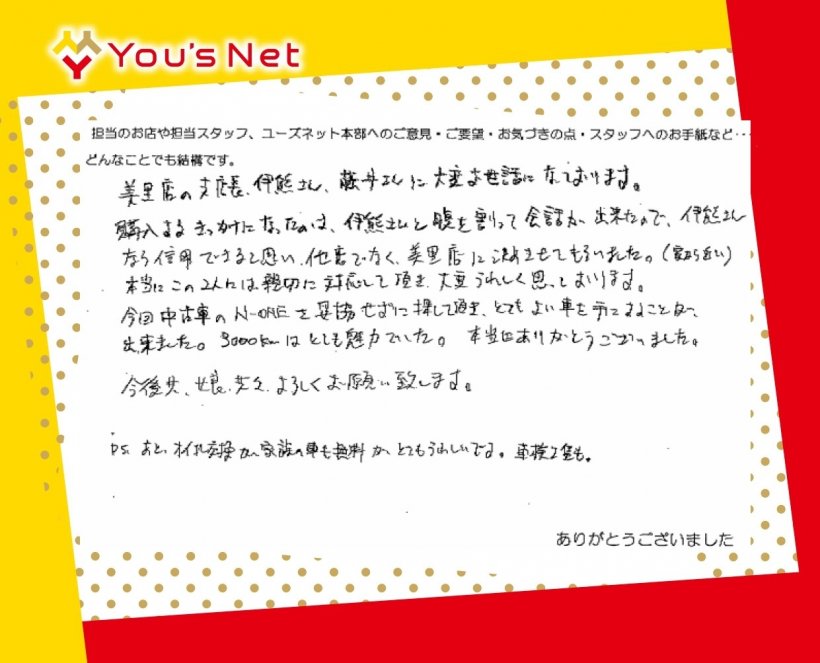 You's Net
担当のお店や担当スタッフ、ユーズネット本部へのご意見・ご要望・お気づきの点・スタッフへのお手紙など・・・
どんなことでも結構です。
美里店の支店長、伊熊さん、藤井さんに大変お世話になっております。
購入するきっかけになったのは、伊熊さんと腹を割って会話が出来たので、伊熊さん
なら信用できると思い、他店でなく、美里店に決めさせてもらいました。(家から近い)
本当にこの2人には親切に対応して頂き、大変うれしく思っております。
今回中古車のN-ONEを妥協せずに探して頂き、とてもよい車を手にすることが、
出来ました。3000kmはとても魅力でした。本当にありがとうございました。
今後共、娘、共々、よろしくお願い致します。
PS. あと、オイル交換が、家族の車も無料が、とてもうれしいです。車検2倍も。
ありがとうございました